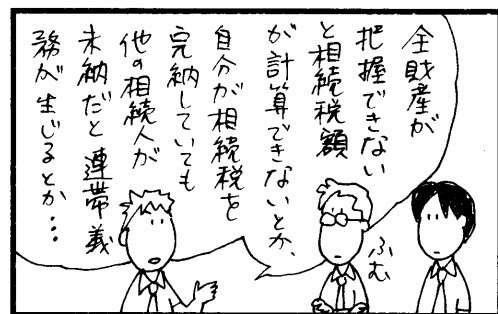 全財産が
把握できない
と相続税額
が計算できないとか、
自分が相続税を
完納していても
他の相続人が
未納だと連帯義
務が生じるとか…
ふむ